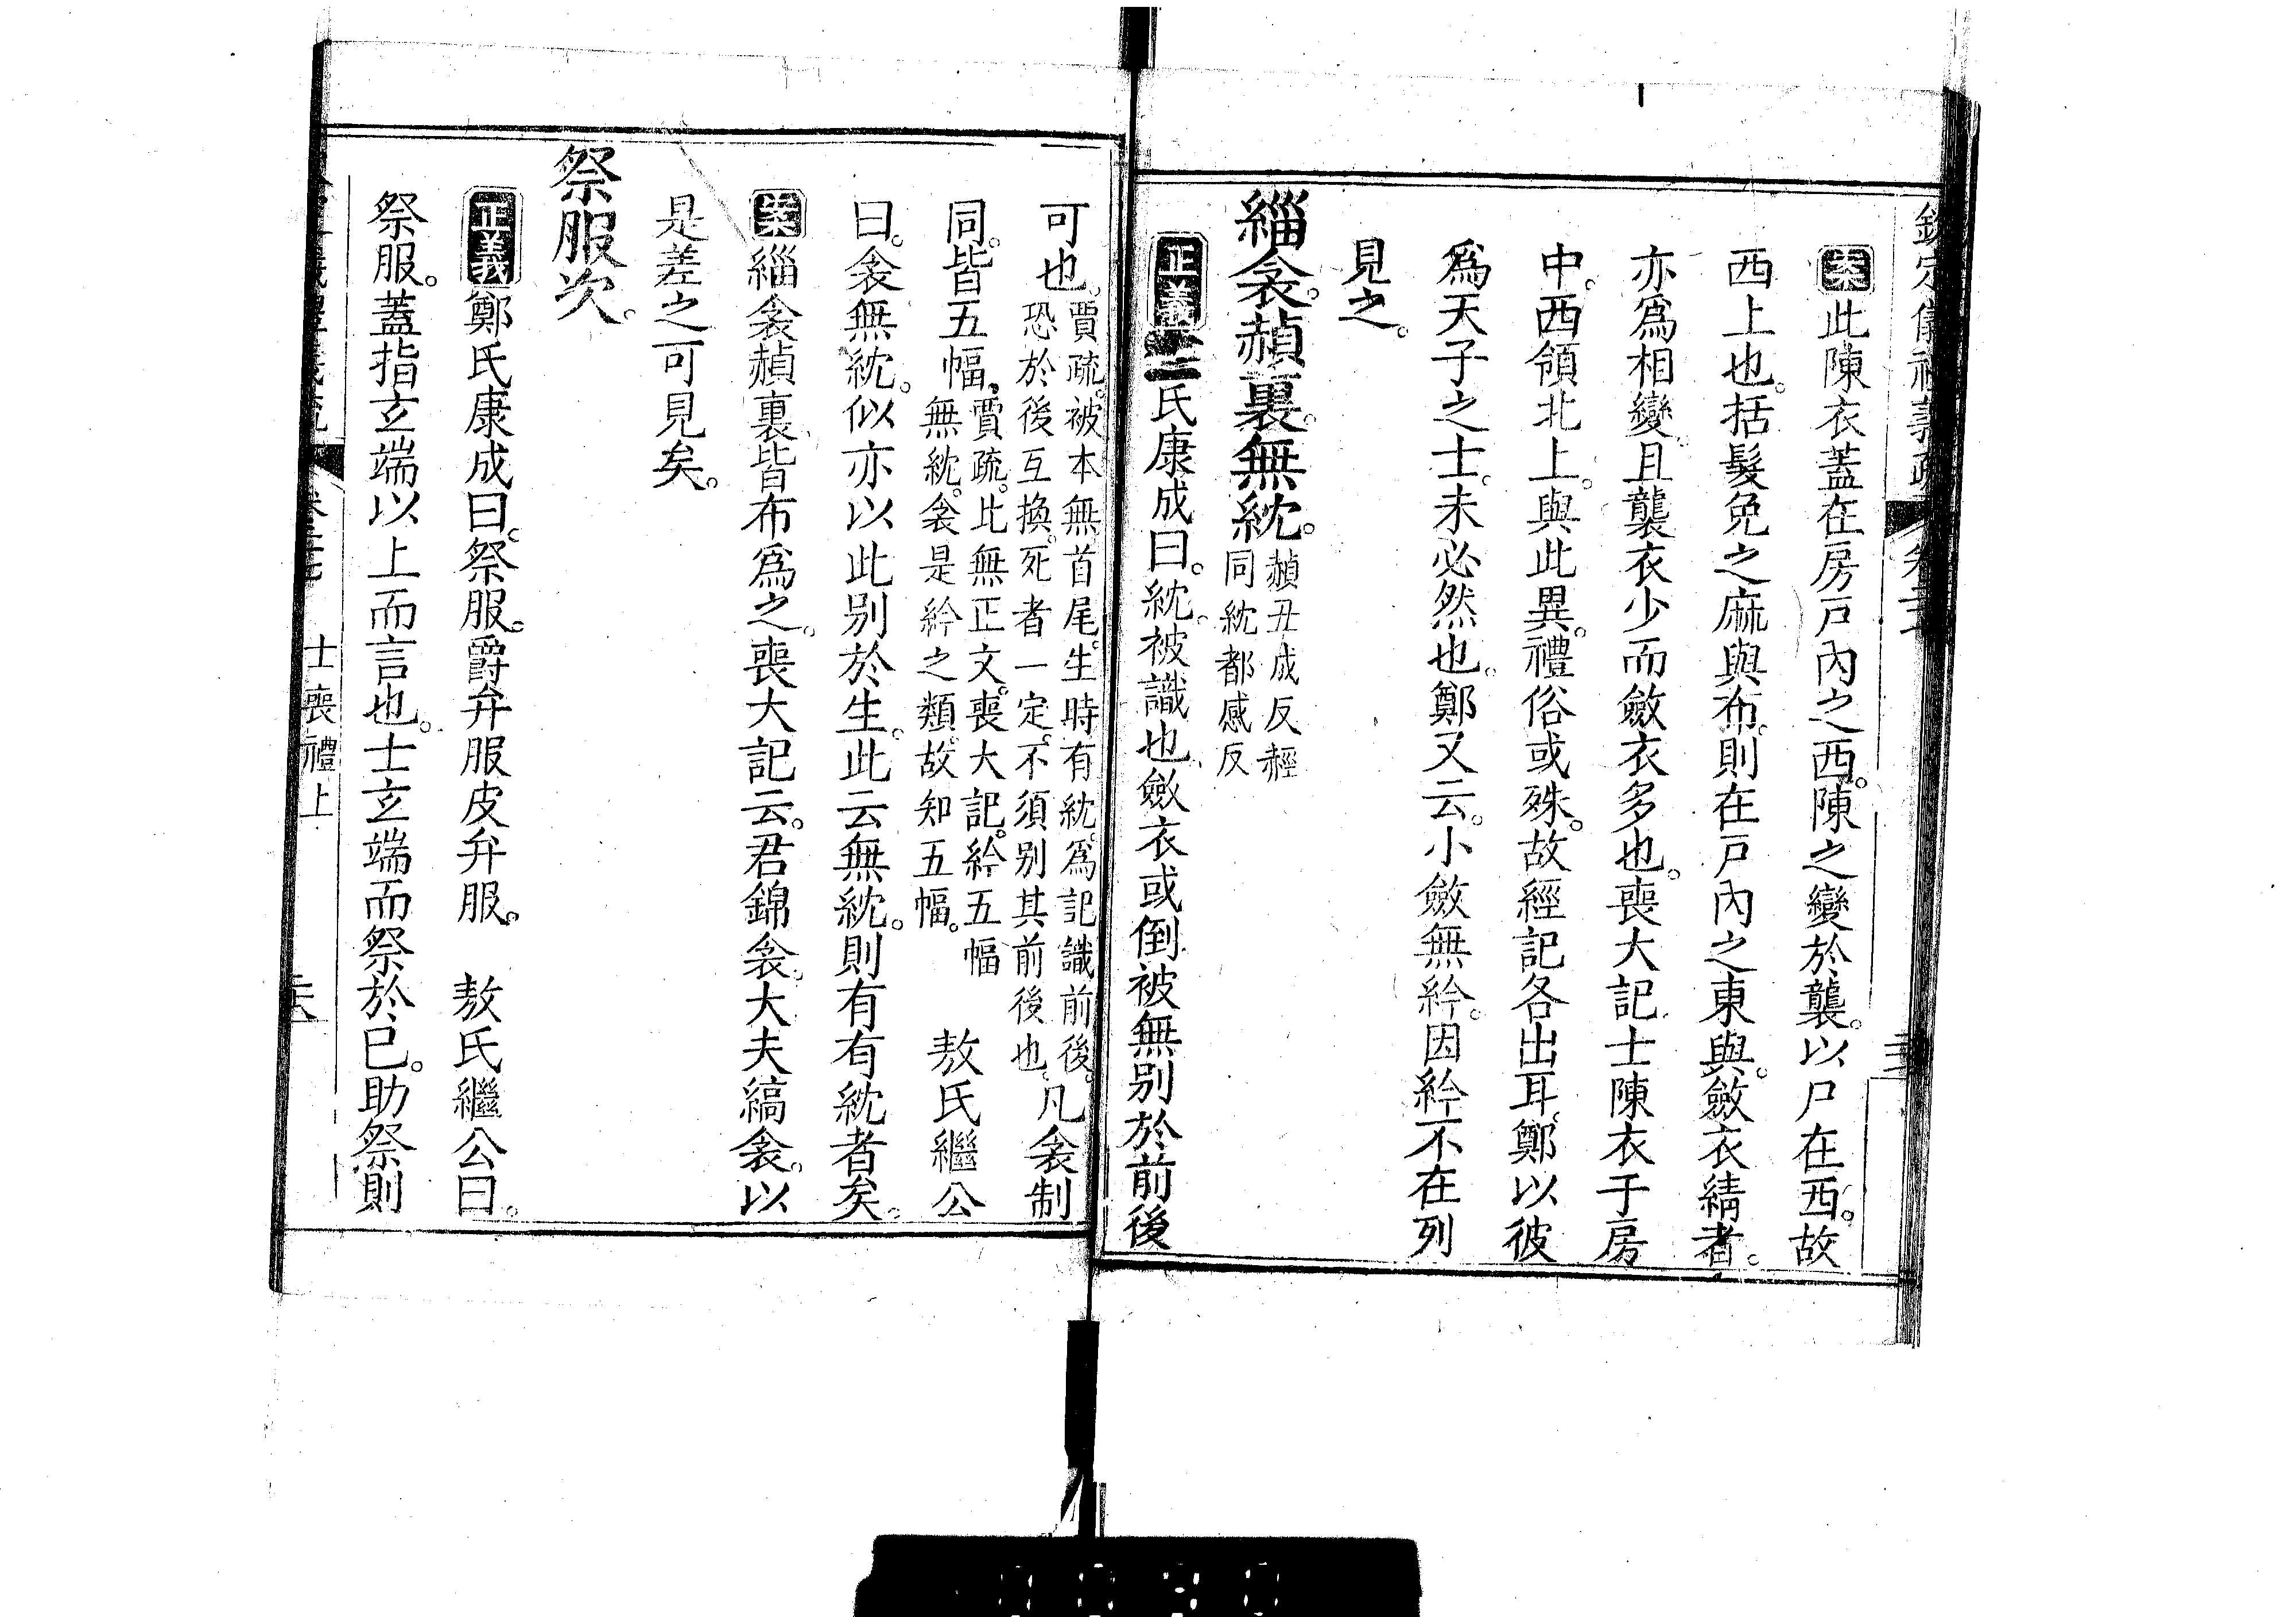 欽定儀禮義疏
案此陳衣蓋在房戸內之西。陳之變於襲。以尸在西。故
西上也。括髮免之麻與布。則在戸內之東與。斂衣綪者。
亦爲相變。且襲衣少而斂衣多也。喪大記士陳衣于房
中。西領北上。與此異。禮俗或殊。故經記各出耳。鄭以彼
爲天子之士。未必然也。鄭又云。小斂無紟。因紟不在列
見之。
緇衾。赬裏。無紞。赬丑成反經
同紞都感反
正義氏康成曰。紞。被識也。斂衣或倒被無别於前後
可也。賈疏。被本無首尾。生時有紞。爲記識前後。
恐於後互換。死者一定。不須别其前後也。凡衾制
同。皆五幅。賈疏。此無正文。喪大記。紟五幅
無紞。衾是紟之類。故知五幅。 敖氏繼公
曰。衾無紞。似亦以此别於生。此云無紞。則有有紞者矣。
案緇衾赬裏。皆布爲之。喪大記云。君錦衾。大夫縞衾。以
是差之可見矣。
祭服次。
正義鄭氏康成曰。祭服。爵弁服皮弁服。 敖氏繼公曰。
祭服。蓋指玄端以上而言也。士玄端而祭於已。助祭則
士喪禮上